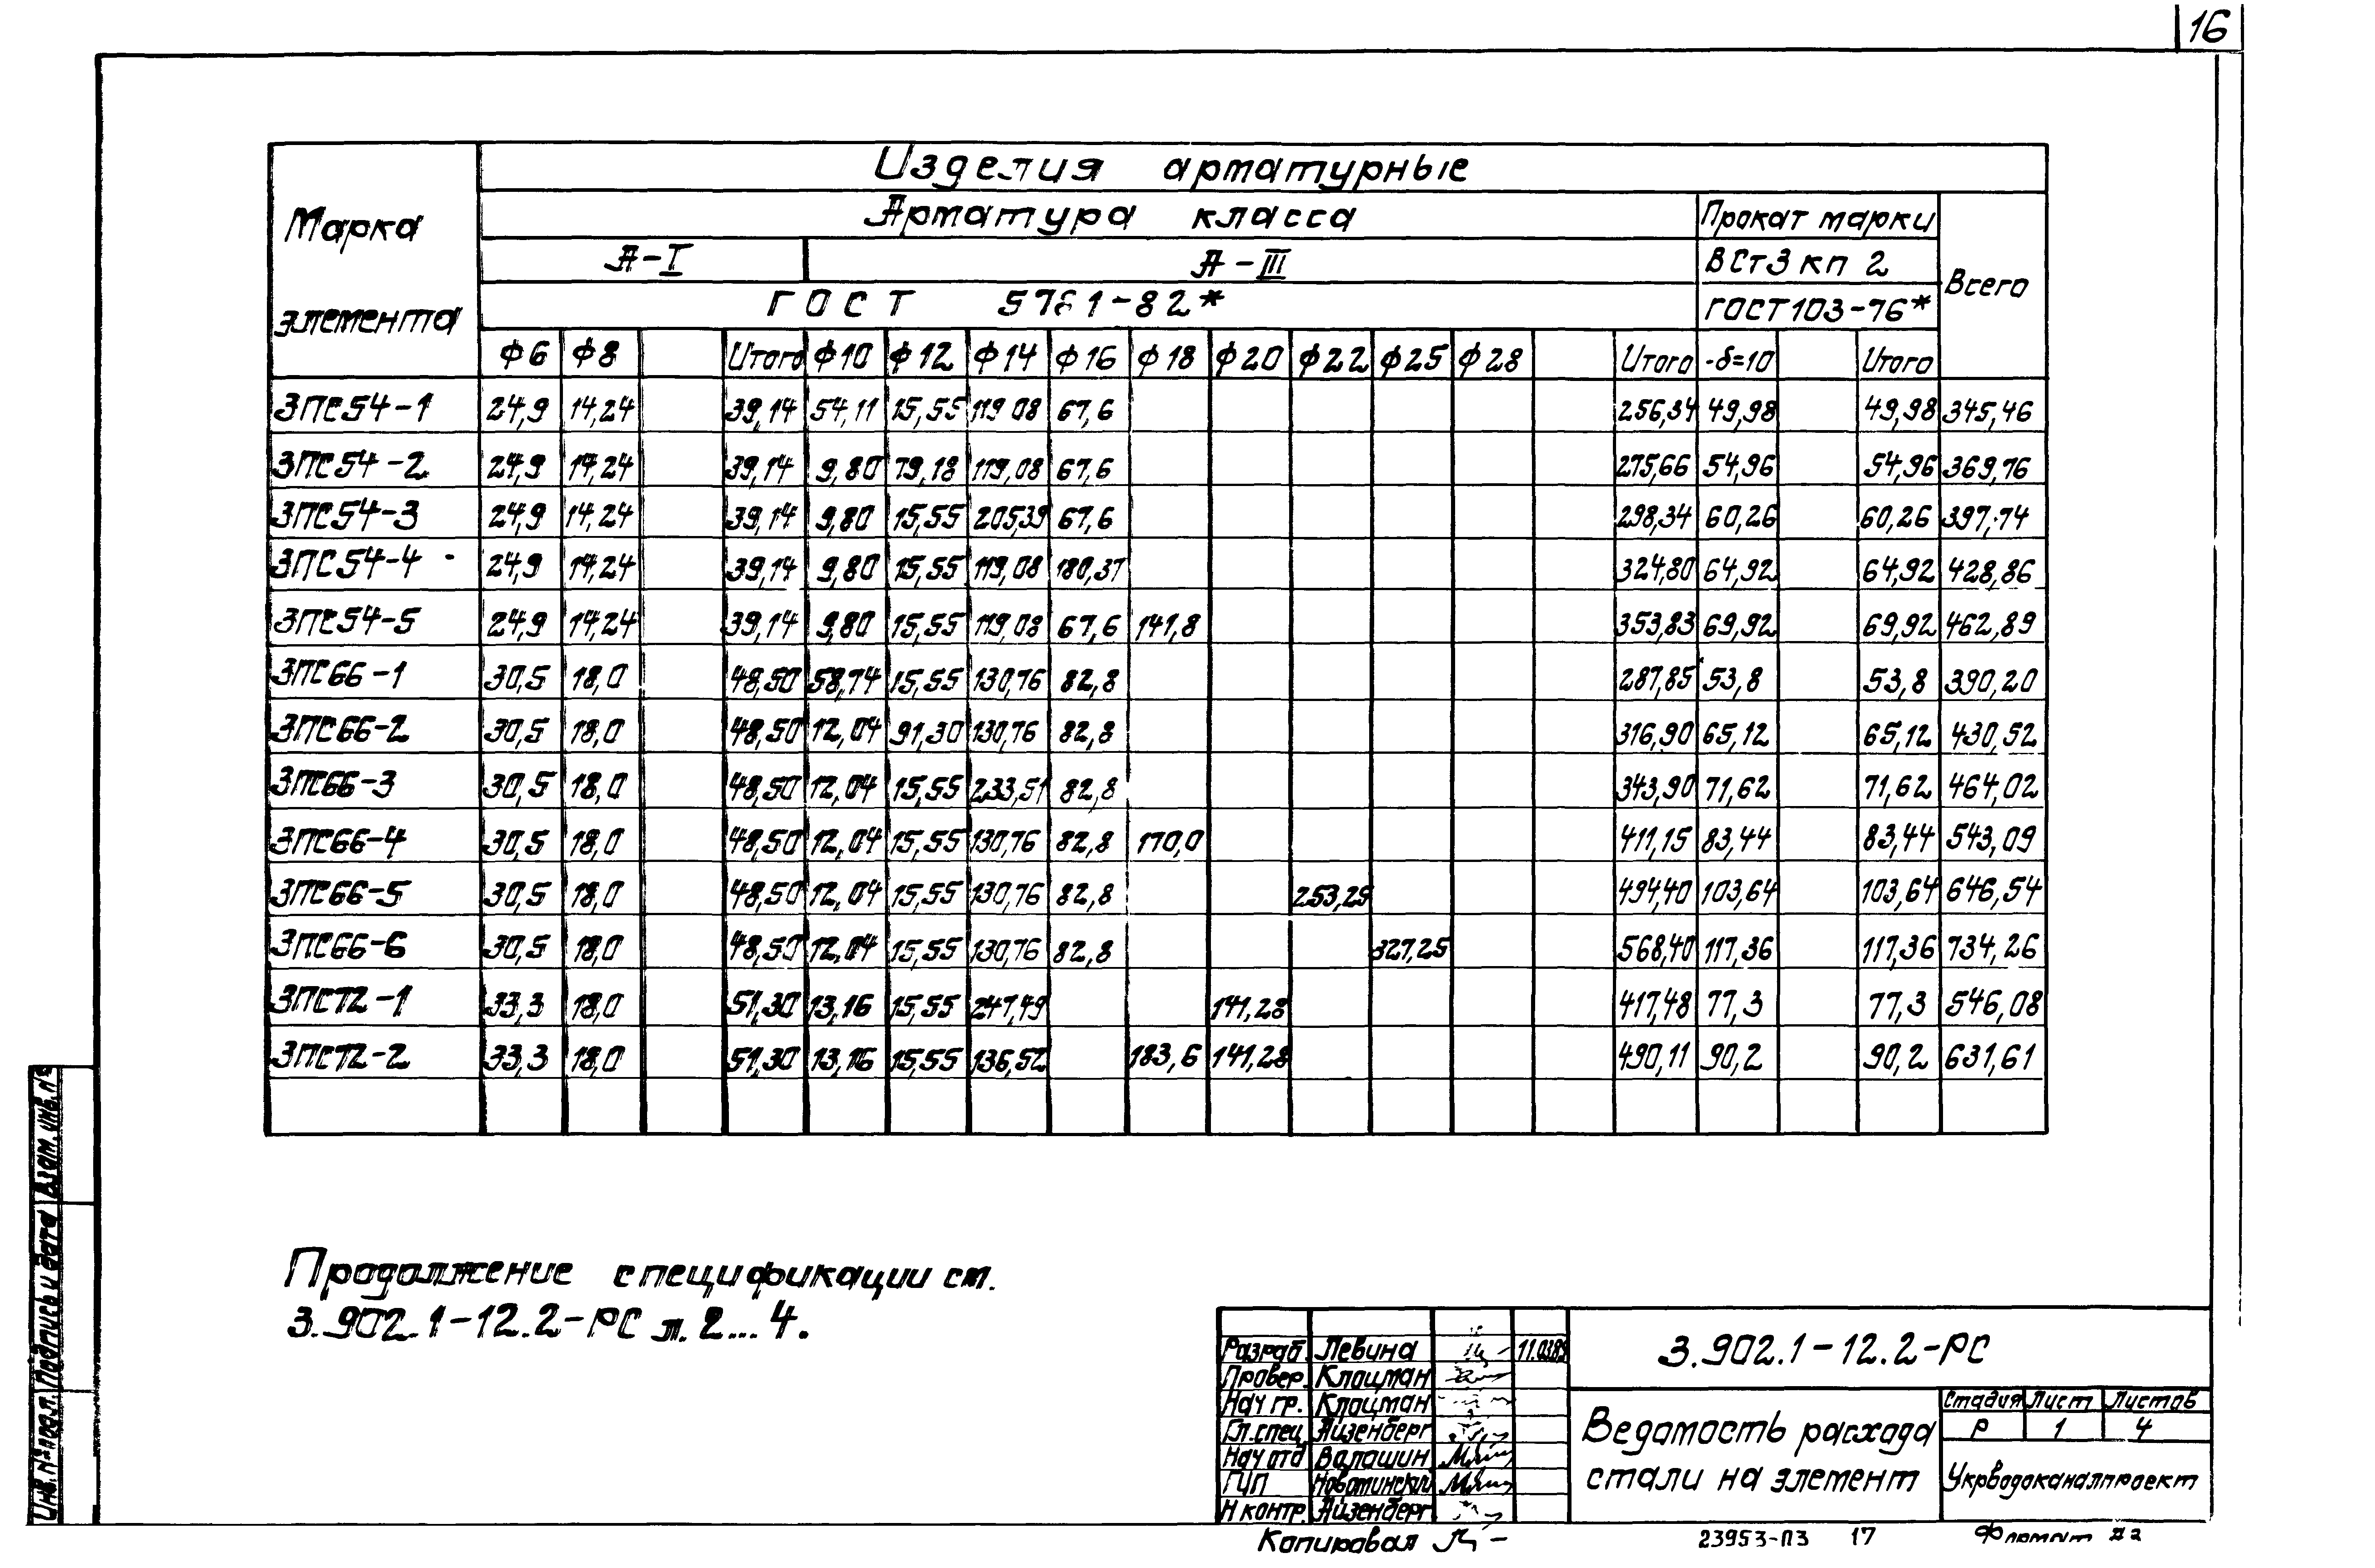 16
Изделия арматурные
Марка элемента
Арматура класса
Прокат марки
Всего
А-I
А-III
ВСт3 кп 2
ГОСТ 5781-82*
ГОСТ 103-76*
ф6 ф8 Итого ф10 ф12 ф14 ф16 ф18 ф20 ф22 ф25 ф28 Итого -δ=10 Итого
3ПС54-1 24,9 14,24 39,14 54,11 15,55 119,08 67,6 256,34 49,98 49,98 345,46
3ПС54-2 24,9 14,24 39,14 9,80 79,18 119,08 67,6 275,66 54,96 54,96 369,76
3ПС54-3 24,9 14,24 39,14 9,80 15,55 205,39 67,6 298,34 60,26 60,26 397,74
3ПС54-4 24,9 14,24 39,14 9,80 15,55 119,08 180,37 324,80 64,92 64,92 428,86
3ПС54-5 24,9 14,24 39,14 9,80 15,55 119,08 67,6 141,8 353,83 69,92 69,92 462,89
3ПС66-1 30,5 18,0 48,50 58,74 15,55 130,76 82,8 287,85 53,8 53,8 390,20
3ПС66-2 30,5 18,0 48,50 12,04 91,30 130,76 82,8 316,90 65,12 65,12 430,52
3ПС66-3 30,5 18,0 48,50 12,04 15,55 233,51 82,8 343,90 71,62 71,62 464,02
3ПС66-4 30,5 18,0 48,50 12,04 15,55 130,76 82,8 170,0 411,15 83,44 83,44 543,09
3ПС66-5 30,5 18,0 48,50 12,04 15,55 130,76 82,8 253,25 494,40 103,64 103,64 646,54
3ПС66-6 30,5 18,0 48,50 12,04 15,55 130,76 82,8 327,25 568,40 117,36 117,36 734,26
3ПС72-1 33,3 18,0 51,30 13,16 15,55 247,49 141,28 417,48 77,3 77,3 546,08
3ПС72-2 33,3 18,0 51,30 13,16 15,55 136,52 183,6 141,28 490,11 90,2 90,2 631,61
Продолжение спецификации см.
3.902.1-12.2-РС л. 2...4.
Инв.№подл. Подпись и дата Взам. инв.№
Разраб. Левина
Провер. Клоцман
Нач гр. Клоцман
Гл.спец. Айзенберг
Нач отд Валашин
ГИП Новотинский
Н контр. Айзенберг
3.902.1-12.2-РС
Ведомость расхода
стали на элемент
Стадия Лист Листов
Р 1 4
Укрводоканалпроект
Копировал
23953-03 17
Формат